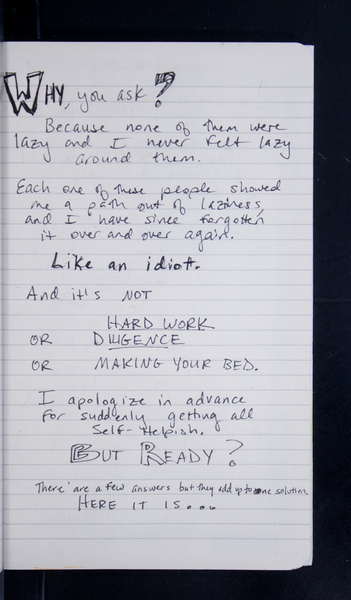 WHY, you ask?
Because none of them were
lazy and I never felt lazy
around them.
Each one of these people showed
me a path out of laziness,
and I have since forgotten
it over and over again.
Like an idiot.
And it's NOT
HARD WORK
OR DILIGENCE
OR MAKING YOUR BED.
I apologize in advance
for suddenly getting all
Self-Helpish.
BUT READY?
There are a few answers but they add up to one solution.
HERE IT IS...